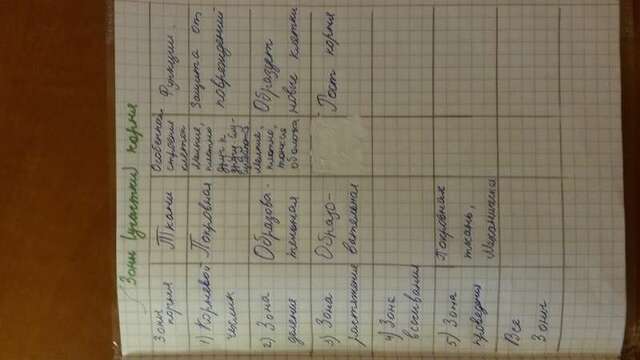 Зоны (участки) корня
Зоны
корня
Ткани
Особенност.
строения
клеток
Функции.
1) Корневой
чехлик
Покровная
Мелкие,
плотно,
друг к
другу
Защита от
повреждений
2) Зона
деления
Образова-
тельная
Мелкие,
плотно,
тонкие
оболочка
Образует
новые клетки
3) Зона
растяжения
Образо-
вательная
Рост корня
4) Зона
всасывания
5) Зона
проведения
Покровная
ткань,
Механическ
Все
Зоны